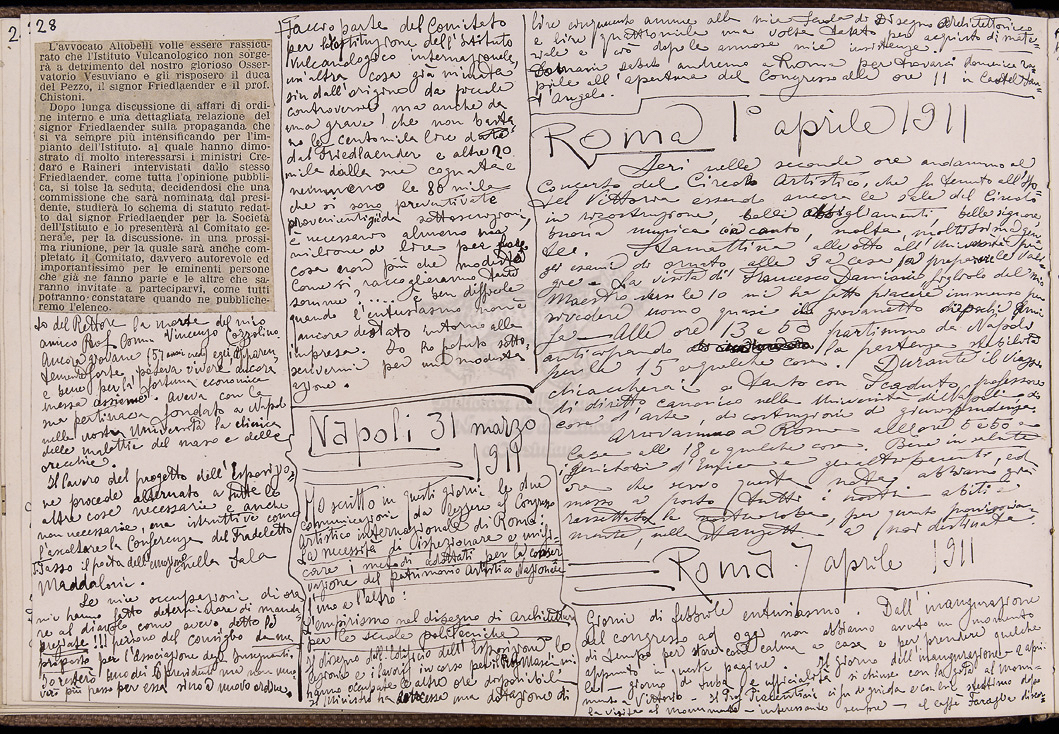 28
L'avvocato Altobelli volle essere rassicu-
rato che l'Istituto Vulcanologico non sorge-
rà a detrimento del nostro glorioso Osser-
vatorio Vesuviano e gli risposero il duca
del Pezzo, il signor Friedlaender e il prof.
Chistoni.
Dopo lunga discussione di affari di ordi-
ne interno e una dettagliata relazione del
signor Friedlaender sulla propaganda che
si va sempre più intensificando per l'im-
pianto dell'Istituto, al quale hanno dimo-
strato di molto interessarsi i ministri Cre-
daro e Raineri intervistati dallo stesso
Friedlaender, come tutta l'opinione pubbli-
ca, si tolse la seduta, decidendosi che una
commissione che sarà nominata dal presi-
dente, studierà lo schema di statuto redat-
to dal signor Friedlaender per la Società
dell'Istituto e lo presenterà al Comitato ge-
nerale, per la discussione, in una prossi-
ma riunione, per la quale sarà anche com-
pletato il Comitato, davvero autorevole ed
importantissimo per le eminenti persone
che già ne fanno parte e le altre che sa-
ranno invitate a parteciparvi, come tutti
potranno constatare quando ne pubbliche-
remo l'elenco.
to del Rettore la morte del mio
amico Prof. Comm. Vincenzo Cozzolino
Ancora giovane (57 anni
e bene per la fortuna economica
messa assieme. Aveva con la
sua pertinacia fondato a Napoli
nella nostra Università la clinica
delle malattie del naso e delle
orecchie.
Il lavoro del progetto dell'Esposizio-
ne procede alternato a tutte le
altre cose necessarie e anche
non necessarie, ma istruttive come
l'ascoltare la Conferenza del Fradeletto
nella Sala
Maddaloni.
Le mie occupazioni di ora
mi hanno fatto determinare di manda-
re al diavolo, come avevo detto le
per l'Associazione degli Insegnanti.
Faccio parte del Comitato
per l'Istituzione dell'Istituto
Vulcanologico internazionale,
un'altra cosa già minata
sin dall'origine da piccole
controversie ma anche da
una grave! che non basta
no le centomila lire date
dal Friedlaender e altre 20
mila dalla sua cognata e
nemmeno le 80 mila
che si sono preventivate
provenienti da sottoscrizioni,
è necessario almeno un
milione di lire per far
cosa non più che modesta
Come si raccoglieranno tante
somme! È ben difficile
quando l'entusiasmo non è
ancora destato intorno alla
impresa. Io ho potuto sotto-
scrivermi per una modesta
azione.
Napoli 31 marzo
1911
Ho scritto in questi giorni le due
comunicazioni da leggere al Congresso
artistico internazionale di Roma:
La necessità di
i metodi adottati per la conser
vazione del patrimonio Artistico Nazionale
l'uno e l'altro:
L'empirismo nel disegno di Architettura
per le scuole politecniche
Il disegno dell'edificio dell'Esposizione, le
lezioni e i lavori in corso
hanno occupate le altre ore disponibili
Il Ministro ha concesso una dotazione di
lire cinquecento annue alla mia Scuola di Disegno Architettonico
e lire quattromila una volta tanto per acquisto di mate-
riale e ciò dopo le annose mie insistenze.
sabato andremo a Roma per trovarci domenica 2 a
prile all'apertura del Congresso alle ore 11 in Castel San-
t'Angelo.
Roma 1° aprile 1911
Ieri nelle seconde ore andammo al
Concerto del Circolo Artistico, che fu tenuto all'Ho-
tel Vittoria essendo ancora le sale del Circolo
in ricostruzione, belli abbigliamenti, belle signore,
buona musica e canto, molta, moltissima gen
te. Stamattina, alle otto all'Università per
gli esami di ornato alle 9 a casa per preparare le vali-
gie. La visita di Francesco Damiani figliuolo del mio
Maestro verso le 10 mi ha fatto piacere immenso per
rivedere uomo quasi il giovanetto
alle ore 13 e 50 partimmo da Napoli
anticipando la partenza stabilita
per le 15 e qualche cosa. Durante il viaggio
chiacchierai a tanto con Scaduto, professore
di diritto canonico nella Università di Napoli, di
cose d'arte, di costruzioni, di giurisprudenza.
Arrivammo a Roma alle ore 5 e 50 a
casa alle 18 e qualche cosa. Bene in salute
i genitori d'Enrica e gli altri parenti, ed
ora che scrivo questa nota, abbiamo già
messo a posto tutti i nostri abiti e
rassettata la nostra roba, per quanto provvisoria-
mente, nella stanzetta a noi destinata.
Roma 7 aprile 1911
Giorni di febbrile entusiasmo. Dall'inaugurazione
del congresso ad oggi non abbiamo avuto un momento
di tempo per stare con calma a casa e per prendere qualche
appunto in queste pagine. Il giorno dell'inaugurazione 2 apri-
le giorno di tuba e ufficialità si chiuse con la gita al monu-
mento a Vittorio. Il Prof. Piacentini ci fu di guida e con lui stettimo dopo
la visita al monumento interessante sempre